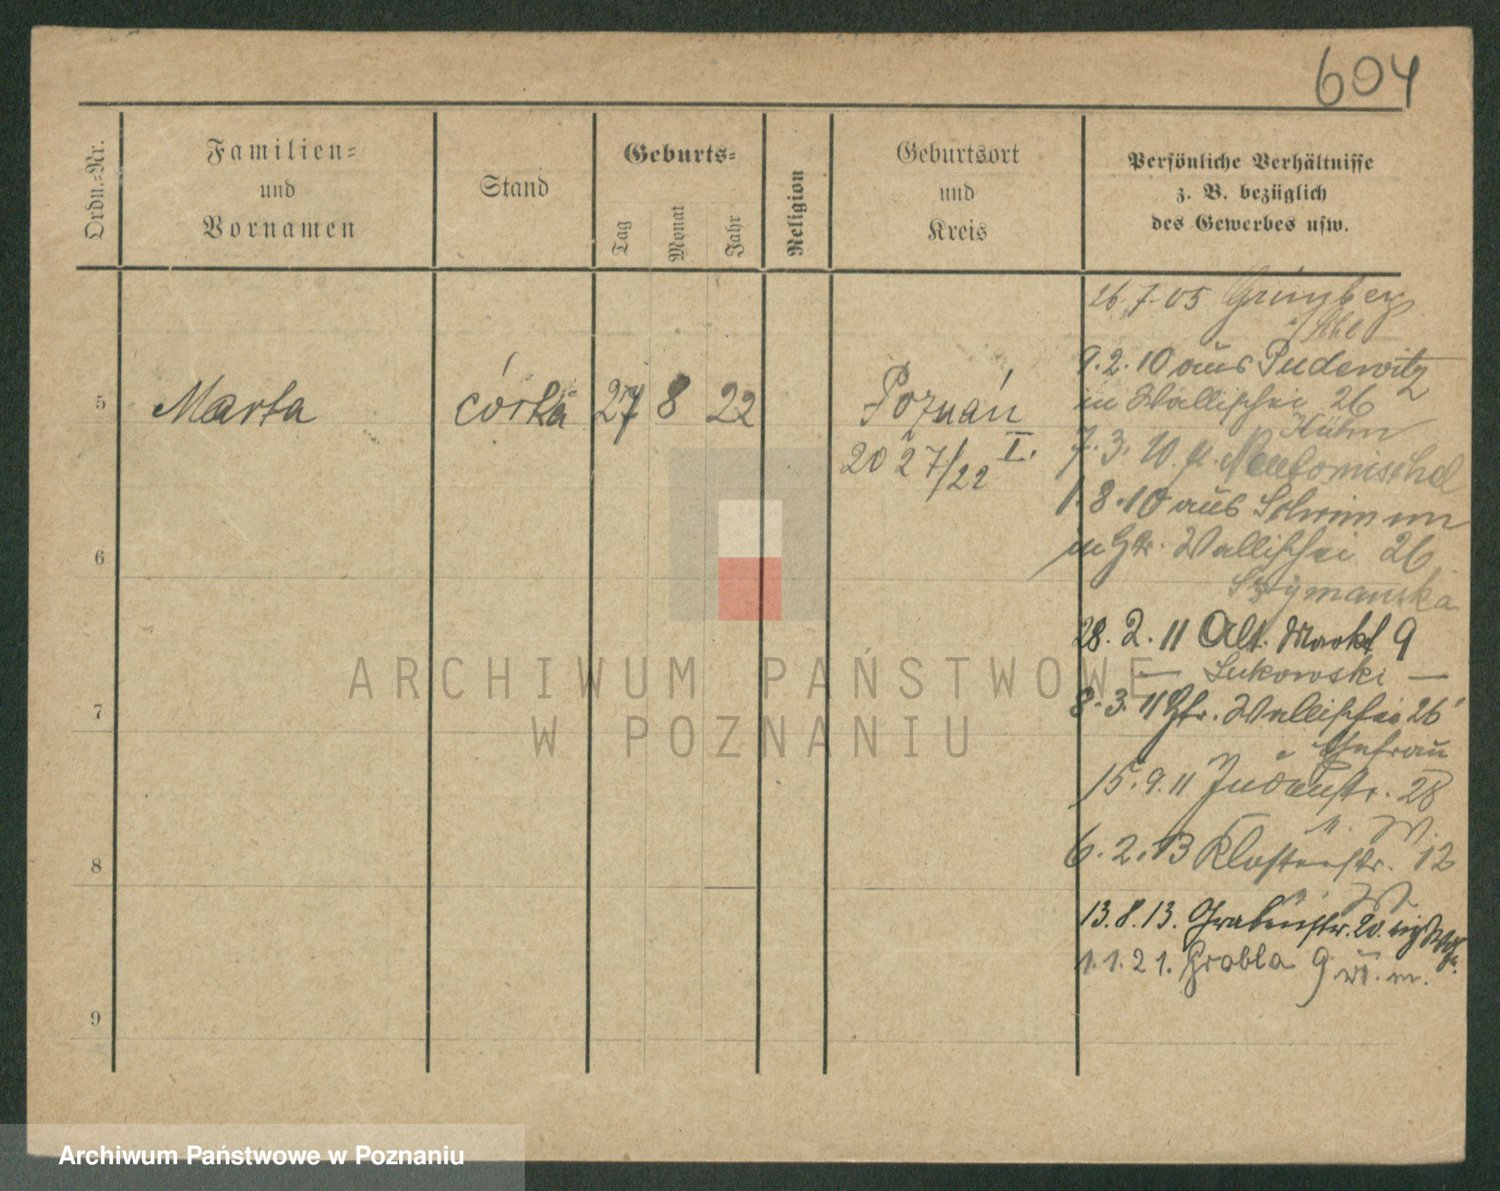 604
Ordn.-Nr.
Familien-
und
Vornamen
Stand
Geburts-
Tag
Monat
Jahr
Religion
Geburtsort
und
Kreis
Persönliche Verhältnisse
z. B. bezüglich
des Gewerbes usw.
5
Marta
córka
27
8
22
Poznań
I.
2027/22
6
7
8
9
26.7.05
9.2.10 aus Pudewitz
in Wallischei 26
Kühn
7.3.10
1.8.10 aus Schrimm
in Wallischei 26
Szymanska
28.2.11 Alt. Markt 9
— Lukowski —
8.3.11 Wallischei 26
Ehefrau
15.9.11 Judenstr. 28
6.2.13 Klosterstr. 12
13.8.13. Grabenstr. 20.
1.1.21. Grobla 9
ARCHIWUM PAŃSTWOWE
W POZNANIU
Archiwum Państwowe w Poznaniu